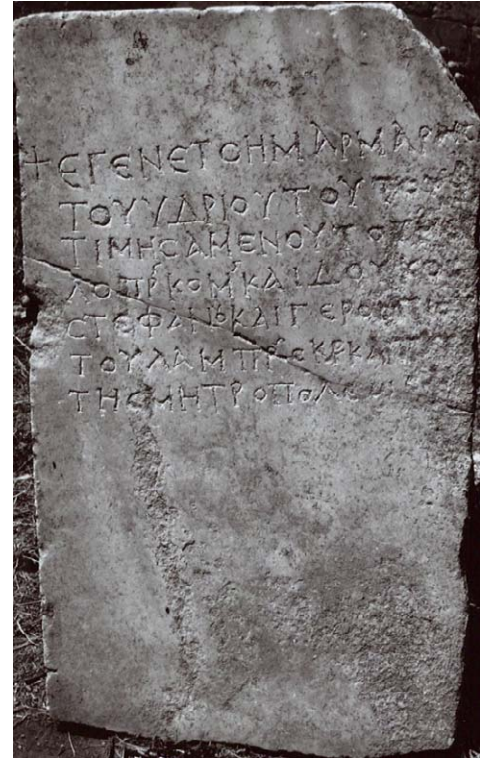 + ΕΓΕΝΕΤΟΗΜΑΡΜΑΡΩC
ΤΟΥΥΔΡΙΟΥΤΟΥΤΟΥ
ΤΙΜΗCΑΜΕΝΟΥΤΟΥ
ΛΟΠΡΚΟΜΚΑΙΔΟΥΚΟ
CΤΕΦΑΝȣΚΑΙΓΕΡΟ
ΤΟΥΛΑΜΠΡΟΚΡΚΑΙΠ
ΤΗCΜΗΤΡΟΠΟΛΕωC